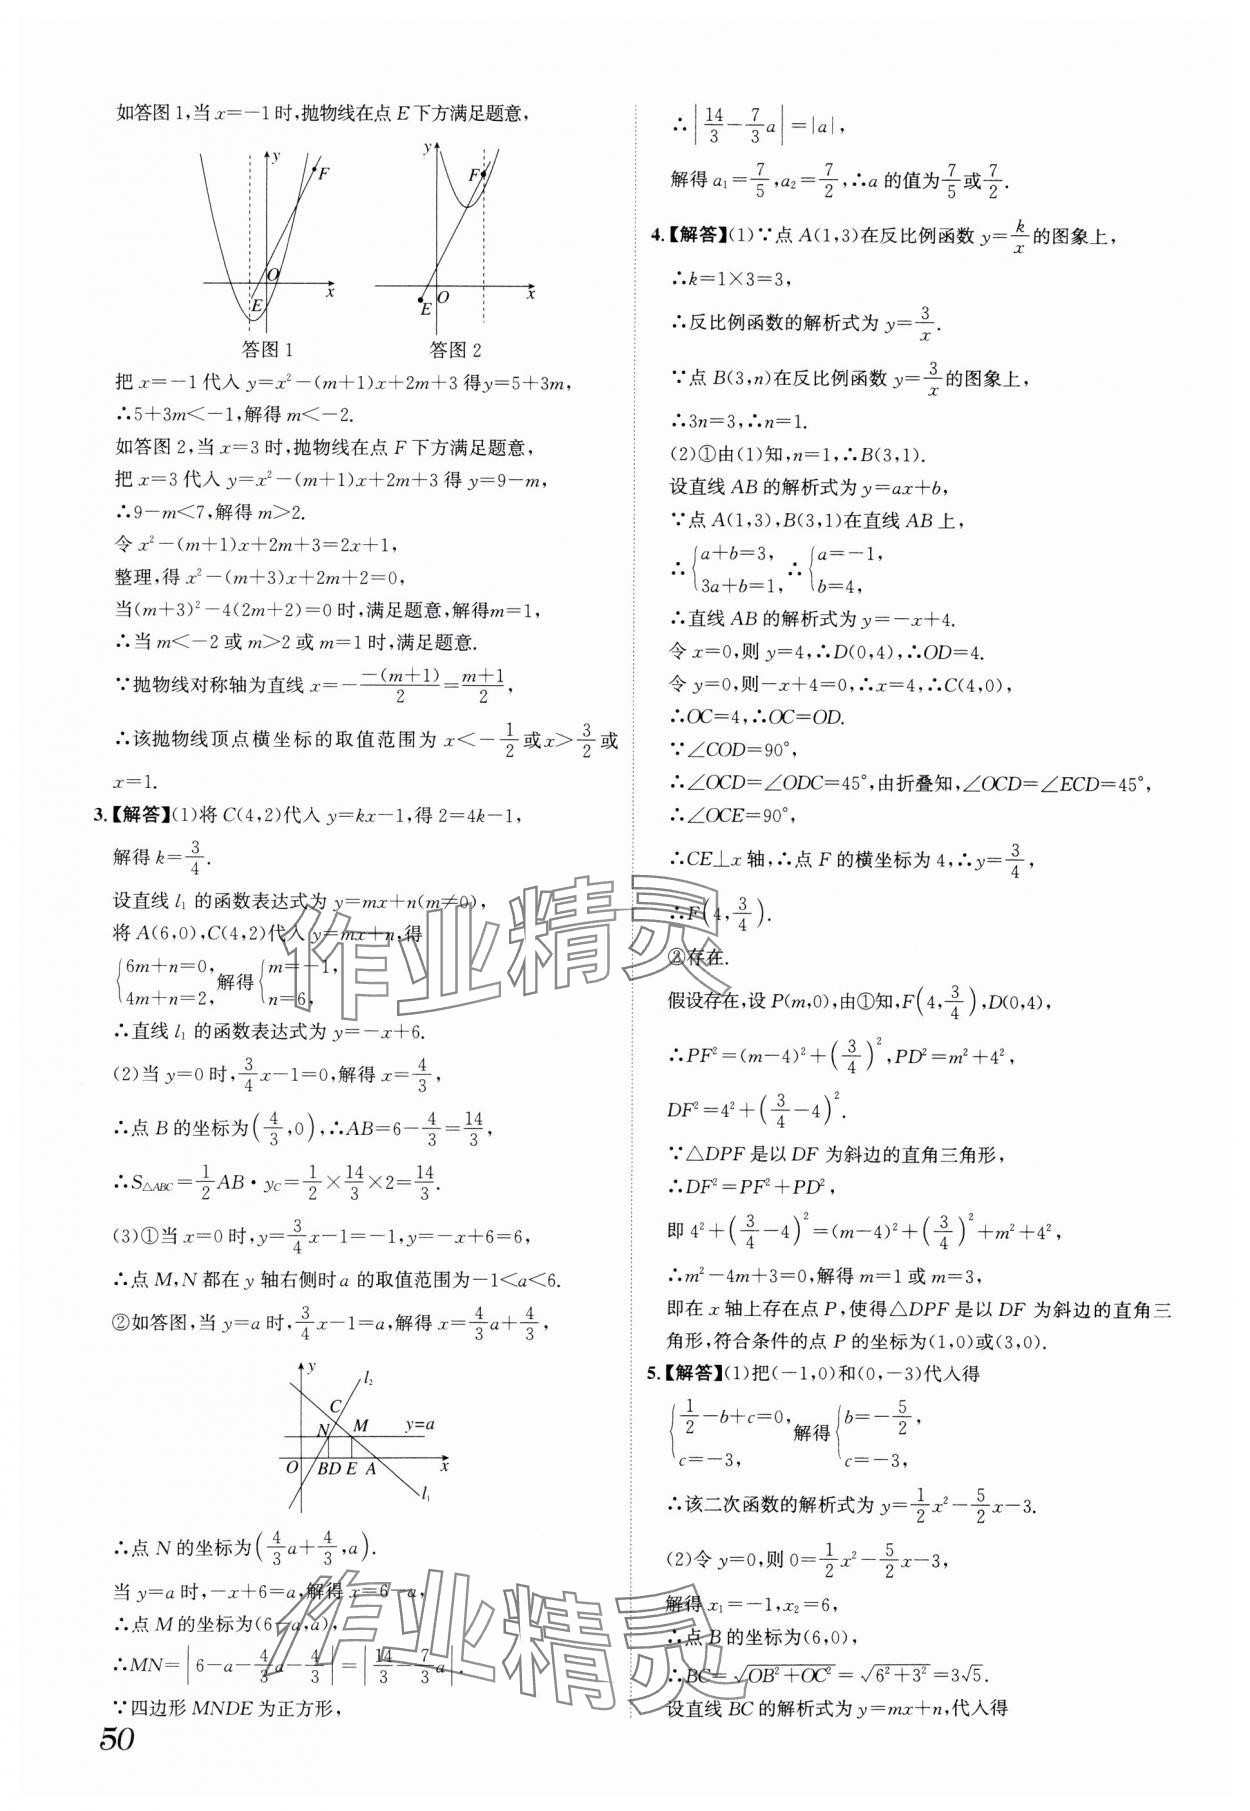 如答图1,当x=-1时,抛物线在点E下方满足题意,
y
F
O
E
x
答图1
y
F
E
O
x
答图2
把x=-1代入y=x²-(m+1)x+2m+3得y=5+3m,
∴5+3m<-1,解得m<-2.
如答图2,当x=3时,抛物线在点F下方满足题意,
把x=3代入y=x²-(m+1)x+2m+3得y=9-m,
∴9-m<7,解得m>2.
令x²-(m+1)x+2m+3=2x+1,
整理,得x²-(m+3)x+2m+2=0,
当(m+3)²-4(2m+2)=0时,满足题意,解得m=1,
∴当m<-2或m>2或m=1时,满足题意.
∵抛物线对称轴为直线x=-\frac{-(m+1)}{2}=\frac{m+1}{2},
∴该抛物线顶点横坐标的取值范围为x<-\frac{1}{2}或x>\frac{3}{2}或
x=1.
3.【解答】(1)将C(4,2)代入y=kx-1,得2=4k-1,
解得k=\frac{3}{4}.
设直线l₁的函数表达式为y=mx+n(m≠0),
将A(6,0),C(4,2)代入y=mx+n,得
{6m+n=0, 4m+n=2, 解得{m=-1, n=6,
∴直线l₁的函数表达式为y=-x+6.
(2)当y=0时,\frac{3}{4}x-1=0,解得x=\frac{4}{3},
∴点B的坐标为(\frac{4}{3},0),∴AB=6-\frac{4}{3}=\frac{14}{3},
∴S△ABC=\frac{1}{2}AB·y_C=\frac{1}{2}×\frac{14}{3}×2=\frac{14}{3}.
(3)①当x=0时,y=\frac{3}{4}x-1=-1,y=-x+6=6,
∴点M,N都在y轴右侧时a的取值范围为-1<a<6.
②如答图,当y=a时,\frac{3}{4}x-1=a,解得x=\frac{4}{3}a+\frac{4}{3},
y
l₂
C
N M y=a
O BD E A x
l₁
∴点N的坐标为(\frac{4}{3}a+\frac{4}{3},a).
当y=a时,-x+6=a,解得x=6-a,
∴点M的坐标为(6-a,a),
∴MN=|6-a-\frac{4}{3}a-\frac{4}{3}|=|\frac{14}{3}-\frac{7}{3}a|.
∵四边形MNDE为正方形,
50
∴|\frac{14}{3}-\frac{7}{3}a|=|a|,
解得a₁=\frac{7}{5},a₂=\frac{7}{2},∴a的值为\frac{7}{5}或\frac{7}{2}.
4.【解答】(1)∵点A(1,3)在反比例函数y=\frac{k}{x}的图象上,
∴k=1×3=3,
∴反比例函数的解析式为y=\frac{3}{x}.
∵点B(3,n)在反比例函数y=\frac{3}{x}的图象上,
∴3n=3,∴n=1.
(2)①由(1)知,n=1,∴B(3,1).
设直线AB的解析式为y=ax+b,
∵点A(1,3),B(3,1)在直线AB上,
∴{a+b=3, 3a+b=1, ∴{a=-1, b=4,
∴直线AB的解析式为y=-x+4.
令x=0,则y=4,∴D(0,4),∴OD=4.
令y=0,则-x+4=0,∴x=4,∴C(4,0),
∴OC=4,∴OC=OD.
∵∠COD=90°,
∴∠OCD=∠ODC=45°,由折叠知,∠OCD=∠ECD=45°,
∴∠OCE=90°,
∴CE⊥x轴,∴点F的横坐标为4,∴y=\frac{3}{4},
∴F(4,\frac{3}{4}).
②存在.
假设存在,设P(m,0),由①知,F(4,\frac{3}{4}),D(0,4),
∴PF²=(m-4)²+(\frac{3}{4})²,PD²=m²+4²,
DF²=4²+(\frac{3}{4}-4)².
∵△DPF是以DF为斜边的直角三角形,
∴DF²=PF²+PD²,
即4²+(\frac{3}{4}-4)²=(m-4)²+(\frac{3}{4})²+m²+4²,
∴m²-4m+3=0,解得m=1或m=3,
即在x轴上存在点P,使得△DPF是以DF为斜边的直角三
角形,符合条件的点P的坐标为(1,0)或(3,0).
5.【解答】(1)把(-1,0)和(0,-3)代入得
{\frac{1}{2}-b+c=0, c=-3, 解得{b=-\frac{5}{2}, c=-3,
∴该二次函数的解析式为y=\frac{1}{2}x²-\frac{5}{2}x-3.
(2)令y=0,则0=\frac{1}{2}x²-\frac{5}{2}x-3,
解得x₁=-1,x₂=6,
∴点B的坐标为(6,0),
∴BC=√(OB²+OC²)=√(6²+3²)=3√5.
设直线BC的解析式为y=mx+n,代入得
作业精灵
作业精灵